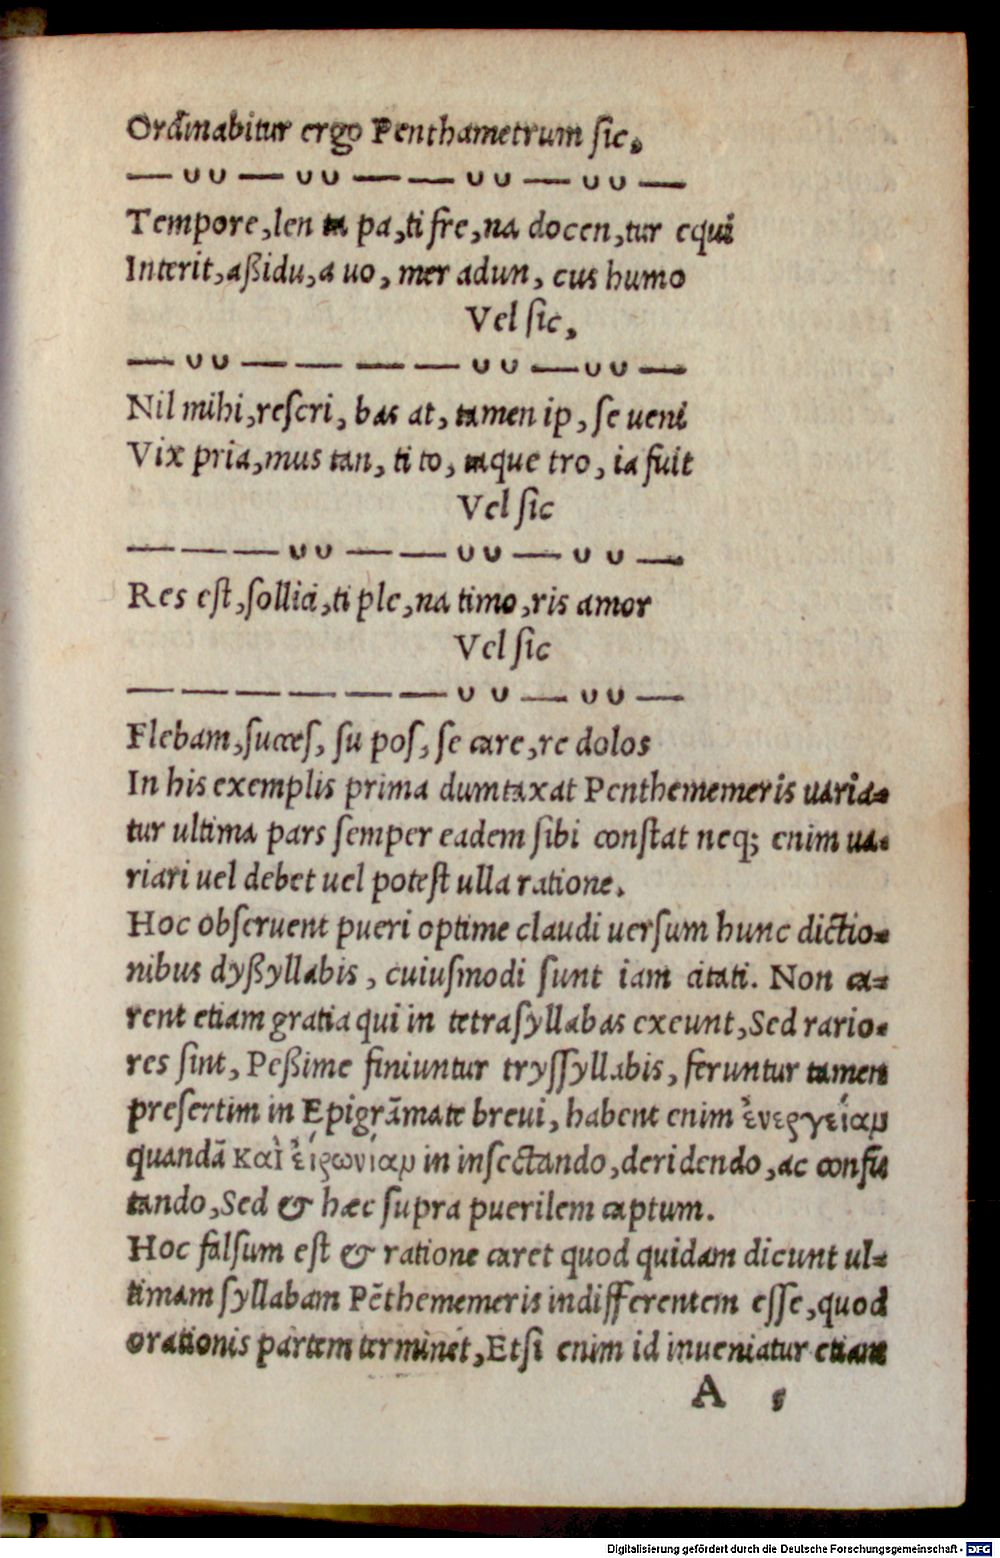 Ordinabitur ergo Penthametrum ſic.
— ∪∪ — ∪∪ — — ∪∪ — ∪∪ —
Tempore,len ta pa,ti fre,na docen,tur equi
Interit,aßidu,a uo, mer adun, cus humo
Vel ſic,
— ∪∪ — — — — ∪∪ — ∪∪ —
Nil mihi,reſcri, bas at, tamen ip, ſe ueni
Vix pria,mus tan, ti to, taque tro, ia fuit
Vel ſic
— — — ∪∪ — — ∪∪ — ∪∪ —
Res eſt,ſollici,ti ple,na timo,ris amor
Vel ſic
— — — — — — ∪∪ — ∪∪ —
Flebam,ſucceſ, ſu poſ, ſe care,re dolos
In his exemplis prima dumtaxat Penthememeris uaria-
tur ultima pars ſemper eadem ſibi conſtat neq; enim ua-
riari uel debet uel poteſt ulla ratione.
Hoc obſeruent pueri optime claudi uerſum hunc dictio-
nibus dyßyllabis, cuiuſmodi ſunt iam citati. Non ca-
rent etiam gratia qui in tetraſyllabas exeunt,Sed rario-
res ſint, Peßime finiuntur tryſſyllabis, feruntur tamen
preſertim in Epigrãmate breui, habent enim ἐνεργείαμ
quandã καὶ εἰρωνίαμ in inſectando,deridendo,ac confu
tando,Sed & hæc ſupra puerilem captum.
Hoc falſum eſt & ratione caret quod quidam dicunt ul-
timam ſyllabam Pẽthememeris indifferentem eſſe,quod
orationis partem terminet,Etſi enim id inueniatur etiam
A 5
Digitalisierung gefördert durch die Deutsche Forschungsgemeinschaft - DFG